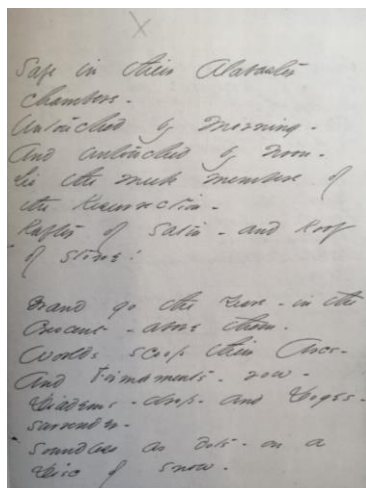 X
Safe in their Alabaster
Chambers -
Untouched by Morning -
And untouched by noon -
Lie the meek members of
the Resurrection -
Rafter of Satin - and Roof
of Stone!
Grand go the Years - in the
Crescent - above them -
Worlds scoop their Arcs -
And Firmaments - row -
Diadems - drop - and Doges -
surrender -
Soundless as dots - on a
Disc of Snow -